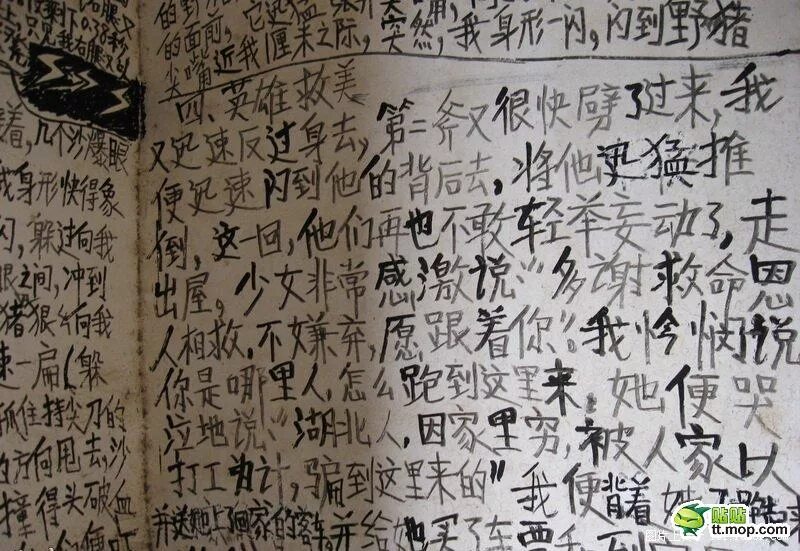 的面前，它迅猛
的尖嘴近我厘未之际，突然，我身形一闪，闪到野猪
四、英雄救美
又迅速反过身去，第二斧又很快劈了过来，我
便迅速闪到他的背后去，将他迅猛推
倒，这一回，他们再也不敢轻举妄动了，走
出屋，少女非常感激说：“多谢救命恩
人相救，不嫌弃，愿跟着你”。我怜悯说
你是哪里人，怎么跑到这里来，她便哭
泣地说：“湖北人，因家里穷，被人家以
打工为计，骗到这里来的”我便背着她
并送她上回家的客车，并给她买了车票
着，几个沙爆眼
我身形快得象
闪，躲过向我
眼之间，冲到
猪狠命向我
速一扁（躲
抓住持尖刀的
的方向甩去，沙
撞得头破血
贴贴
tt.mop.com